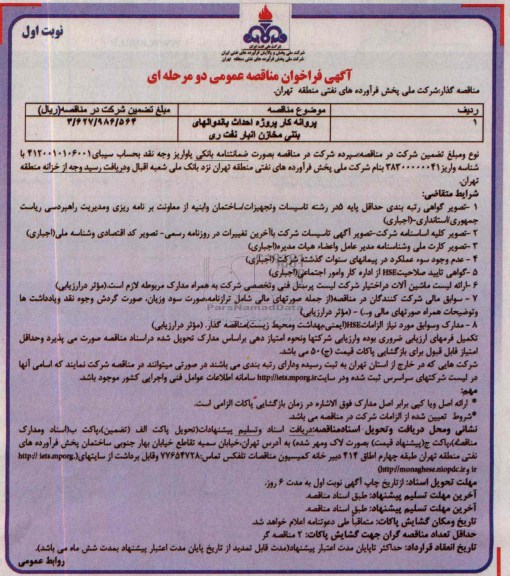 نوبت اول
شرکت ملی پخش فرآورده های نفتی ایران
شرکت ملی پخش فرآورده های نفتی منطقه تهران
آگهی فراخوان مناقصه عمومی دو مرحله ای
مناقصه گذار:شرکت ملی پخش فرآورده های نفتی منطقه تهران.
ردیف موضوع مناقصه مبلغ تضمین شرکت در مناقصه(ریال)
۱ پروانه کار پروژه احداث باندوالهای ۳/۶۲۷/۹۸۶/۵۶۴
بتنی مخازن انبار نفت ری
نوع ومبلغ تضمین شرکت در مناقصه:سپرده شرکت در مناقصه بصورت ضمانتنامه بانکی یاواریز وجه نقد بحساب سیبای۴۱۲۰۰۱۰۱۰۶۰۰۱ با
شناسه واریز۳۸۳۰۰۰۰۰۰۴۱ بنام شرکت ملی پخش فرآورده های نفتی منطقه تهران نزد بانک ملی شعبه اقبال ودریافت رسید وجه از خزانه منطقه
تهران.
شرایط متقاضی:
۱ -تصویر گواهی رتبه بندی حداقل پایه ۵در رشته تاسیسات وتجهیزات/ساختمان وابنیه از معاونت بر نامه ریزی ومدیریت راهبردسی ریاست
جمهوری/استانداری-(اجباری)
۲ -تصویر کلیه اساسنامه شرکت-تصویر آگهی تاسیسات شرکت باآخرین تغییرات در روزنامه رسمی- تصویر کد اقتصادی وشناسه ملی(اجباری)
۳ -تصویر کارت ملی وشناسنامه مدیر عامل واعضاء هیات مدیره(اجباری)
۴ - عدم وجود سوء عملکرد در پیمانهای سنوات گذشته شرکت (اجباری)
۵ -گواهی تایید صلاحیتHSE از اداره کار وامور اجتماعی(اجباری)
۶ -ارائه لیست ماشین آلات دراختیار شرکت لیست پرسنل فنی وتخصصی شرکت به همراه مدارک مربوطه لازم است.(مؤثر درارزیابی)
۷ - سوابق مالی شرکت کنندگان در مناقصه(از جمله صورتهای مالی شامل ترازنامه،صورت سود وزیان، صورت گردش وجوه نقد ویادداشت ها
وتوضیحات همراه صورتهای مالی و...) - (مؤثر درارزیابی)
۸ - مدارک وسوابق مورد نیاز الزاماتHSE(ایمنی،بهداشت ومحیط زیست)مناقصه گذار. (مؤثر درارزیابی)
تکمیل فرمهای ارزیابی ضروری بوده وارزیابی شرکتها ونحوه امتیاز دهی براساس مدارک تحویل شده دراسناد مناقصه صورت می پذیرد وحداقل
امتیاز قابل قبول برای بازگشایی پاکات قیمت (ج) ۵۰ می باشد.
شرکت هایی که در خارج از استان تهران به ثبت رسیده ودارای رتبه بندی می باشند در صورتی میتوانند در مناقصه شرکت نمایند که اسامی آنها
در لیست شرکتهای سراسری ثبت شده ودر سایتhttp://iets.mporg.ir سامانه اطلاعات عوامل فنی واجرایی کشور موجود باشد.
مهم:
* ارائه اصل ویا کپی برابر اصل مدارک فوق الاشاره در زمان بازگشایی پاکات الزامی است.
*شروط تعیین شده از الزامات شرکت در مناقصه می باشد.
نشانی ومحل دریافت وتحویل اسنادمناقصه:دریافت اسناد وتسلیم پیشنهادات(تحویل پاکت الف (تضمین)،پاکت ب(اسناد ومدارک
مناقصه)،پاکت ج(پیشنهاد قیمت) بصورت لاک ومهر شده) به آدرس تهران،خیابان سمیه تقاطع خیابان بهار جنوبی ساختمان پخش فرآورده های
نفتی منطقه تهران طبقه چهارم اطاق ۴۱۴ دبیر خانه کمیسیون مناقصات تلفکس تماس:۷۷۶۵۴۷۲۸ وقابل برداشت از سایتهای(http:// iets.mporg.
ir وhttp://monaghese.niopdc.ir)
مهلت تحویل اسناد: ازتاریخ چاپ آگهی نوبت اول به مدت ۶ روز.
آخرین مهلت تسلیم پیشنهاد: طبق اسناد مناقصه.
آخرین مهلت تسلیم پیشنهاد: طبق اسناد مناقصه.
تاریخ ومکان گشایش پاکات: متعاقباً طی دعوتنامه اعلام خواهد شد.
حداقل تعداد مناقصه گران جهت گشایش پاکات: ۲ مناقصه گر
تاریخ انعقاد قرارداد: حداکثر تاپایان مدت اعتبار پیشنهاد(مدت قابل تمدید از تاریخ پایان مدت اعتبار پیشنهاد بمدت شش ماه می باشد).
روابط عمومی